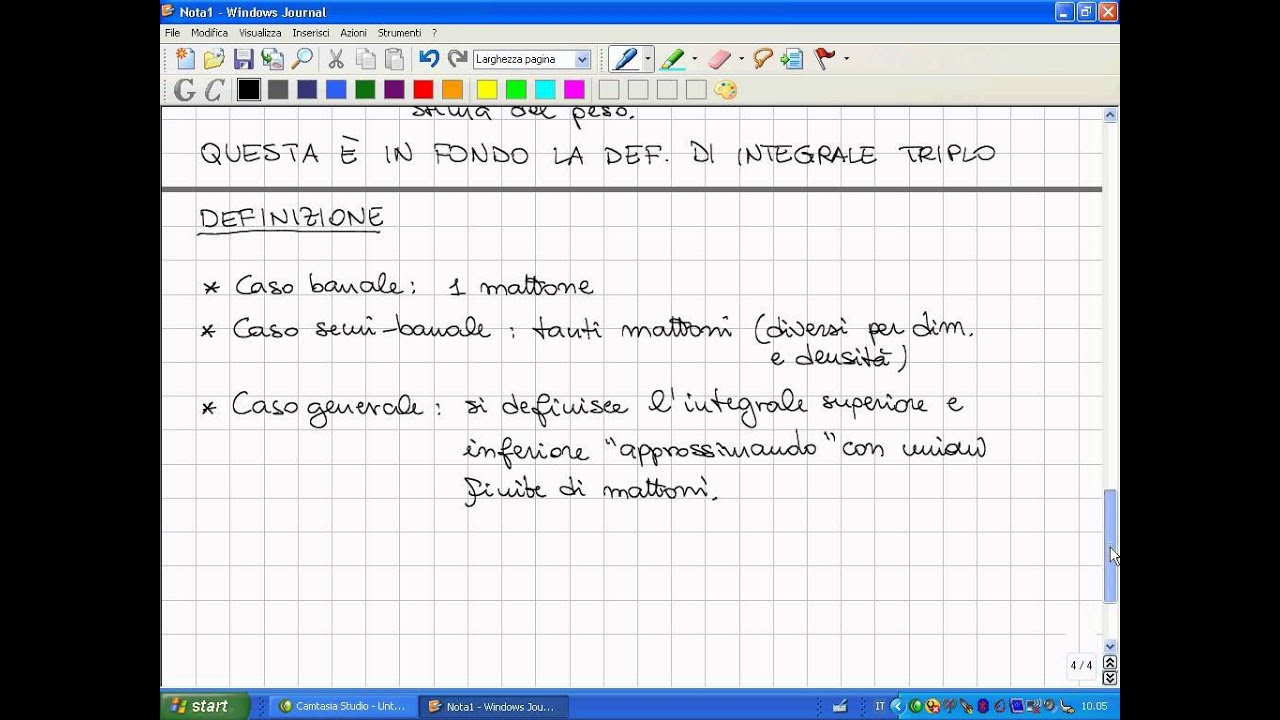 Nota1 - Windows Journal
File Modifica Visualizza Inserisci Azioni Strumenti ?
Larghezza pagina
G C
stima del peso.
QUESTA È IN FONDO LA DEF. DI INTEGRALE TRIPLO
DEFINIZIONE
* Caso banale: 1 mattone
* Caso semi-banale: tanti mattoni (diversi per dim.
e densità)
* Caso generale: si definisce l'integrale superiore e
inferiore "approssimando" con unioni
finite di mattoni.
4 / 4
start Camtasia Studio - Unt... Nota1 - Windows Jou... IT 10.05